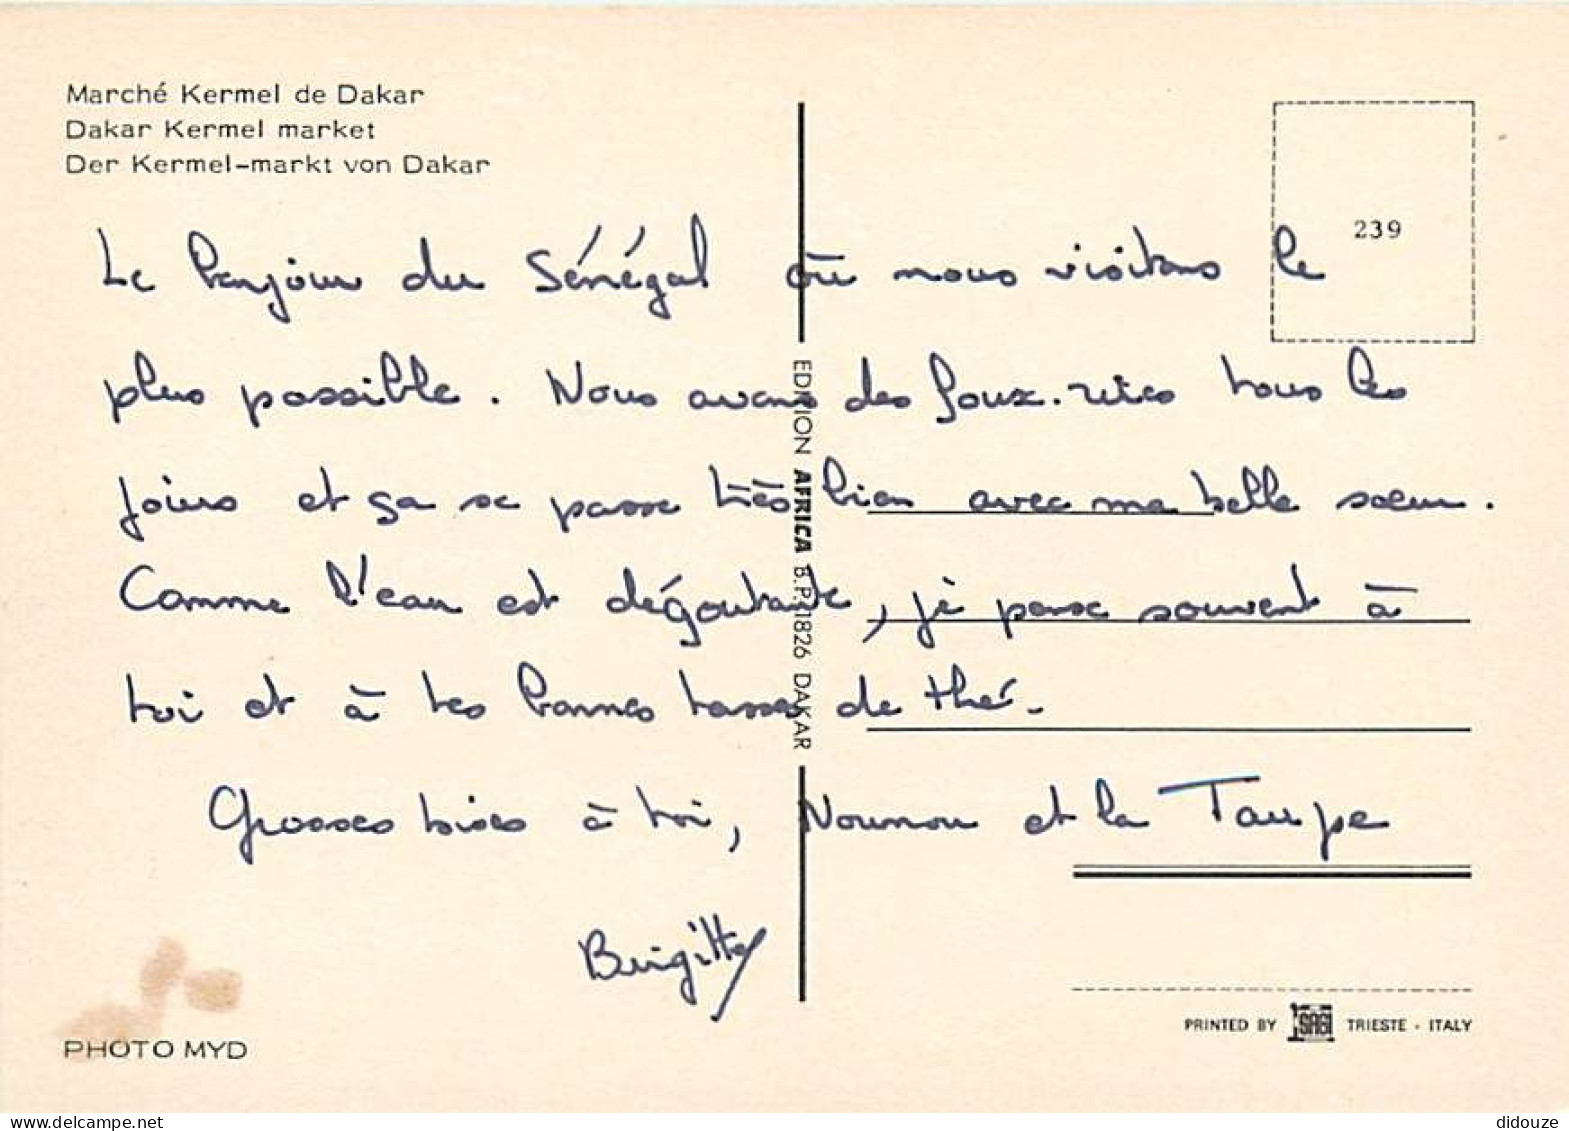 Marché Kermel de Dakar
Dakar Kermel market
Der Kermel-markt von Dakar
239
Le bonjour du Sénégal où nous visitons le
plus possible. Nous avons des foux-rires tous les
jours et ça se passe très bien avec ma belle soeur.
Comme l'eau est dégoutante, je pense souvent à
toi et à tes bonnes tasses de thé.
Grosses bises à toi, Nounou et la Taupe
Brigitte
EDITION AFRICA B.P. 1826 DAKAR
PHOTO MYD
PRINTED BY SAGI TRIESTE - ITALY
delcampe.net
didouze